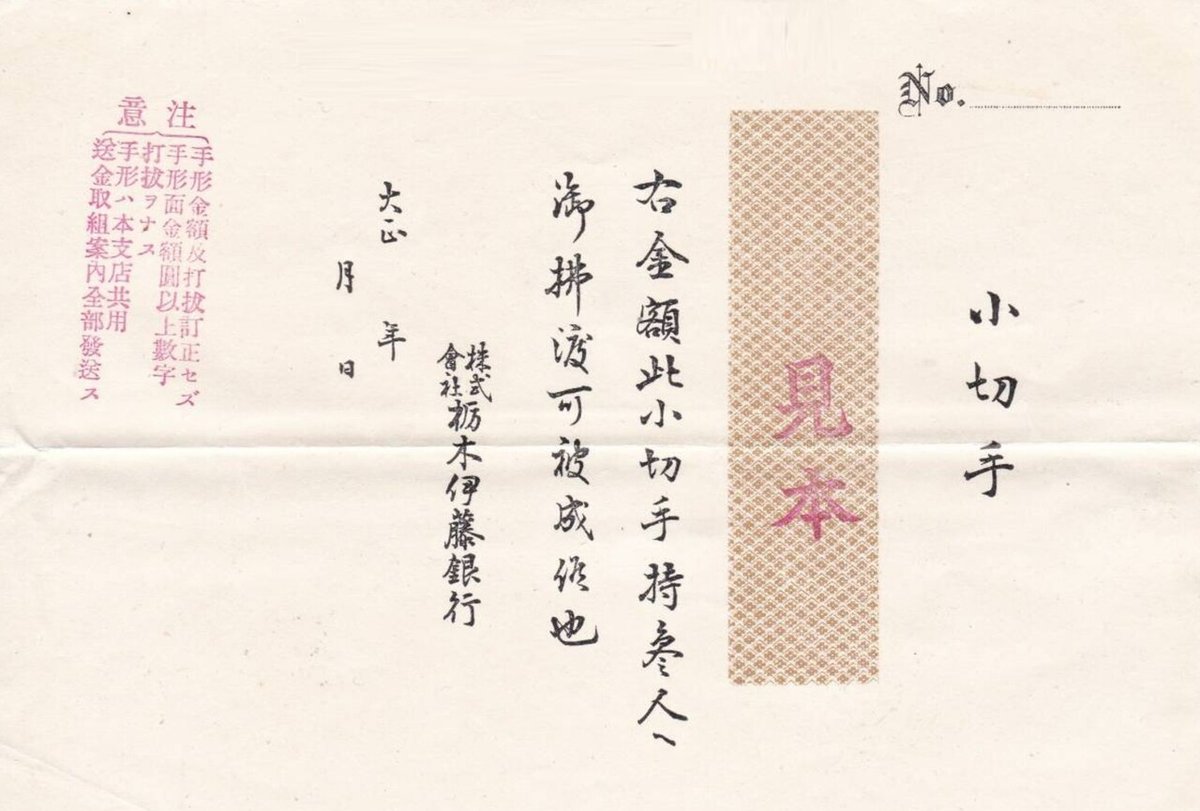 No.
小切手
見本
右金額此小切手持参人へ
御拂渡可被成候也
大正 年
月 日
株式會社栃木伊藤銀行
注意
手形金額及打拔訂正セズ
手形面金額圓以上數字
打拔ヲナス
手形ハ本支店共用
送金取組案內全部發送ス